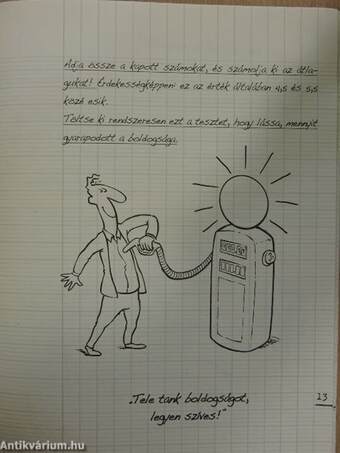 Adja össze a kapott számokat, és számolja ki az átla-
gukat! Érdekességképpen: ez az érték általában 4,5 és 5,5
közé esik.
Töltse ki rendszeresen ezt a tesztet, hogy lássa, mennyit
gyarapodott a boldogsága.
„Tele tank boldogságot,
legyen szíves!”
13
Antikvárium.hu